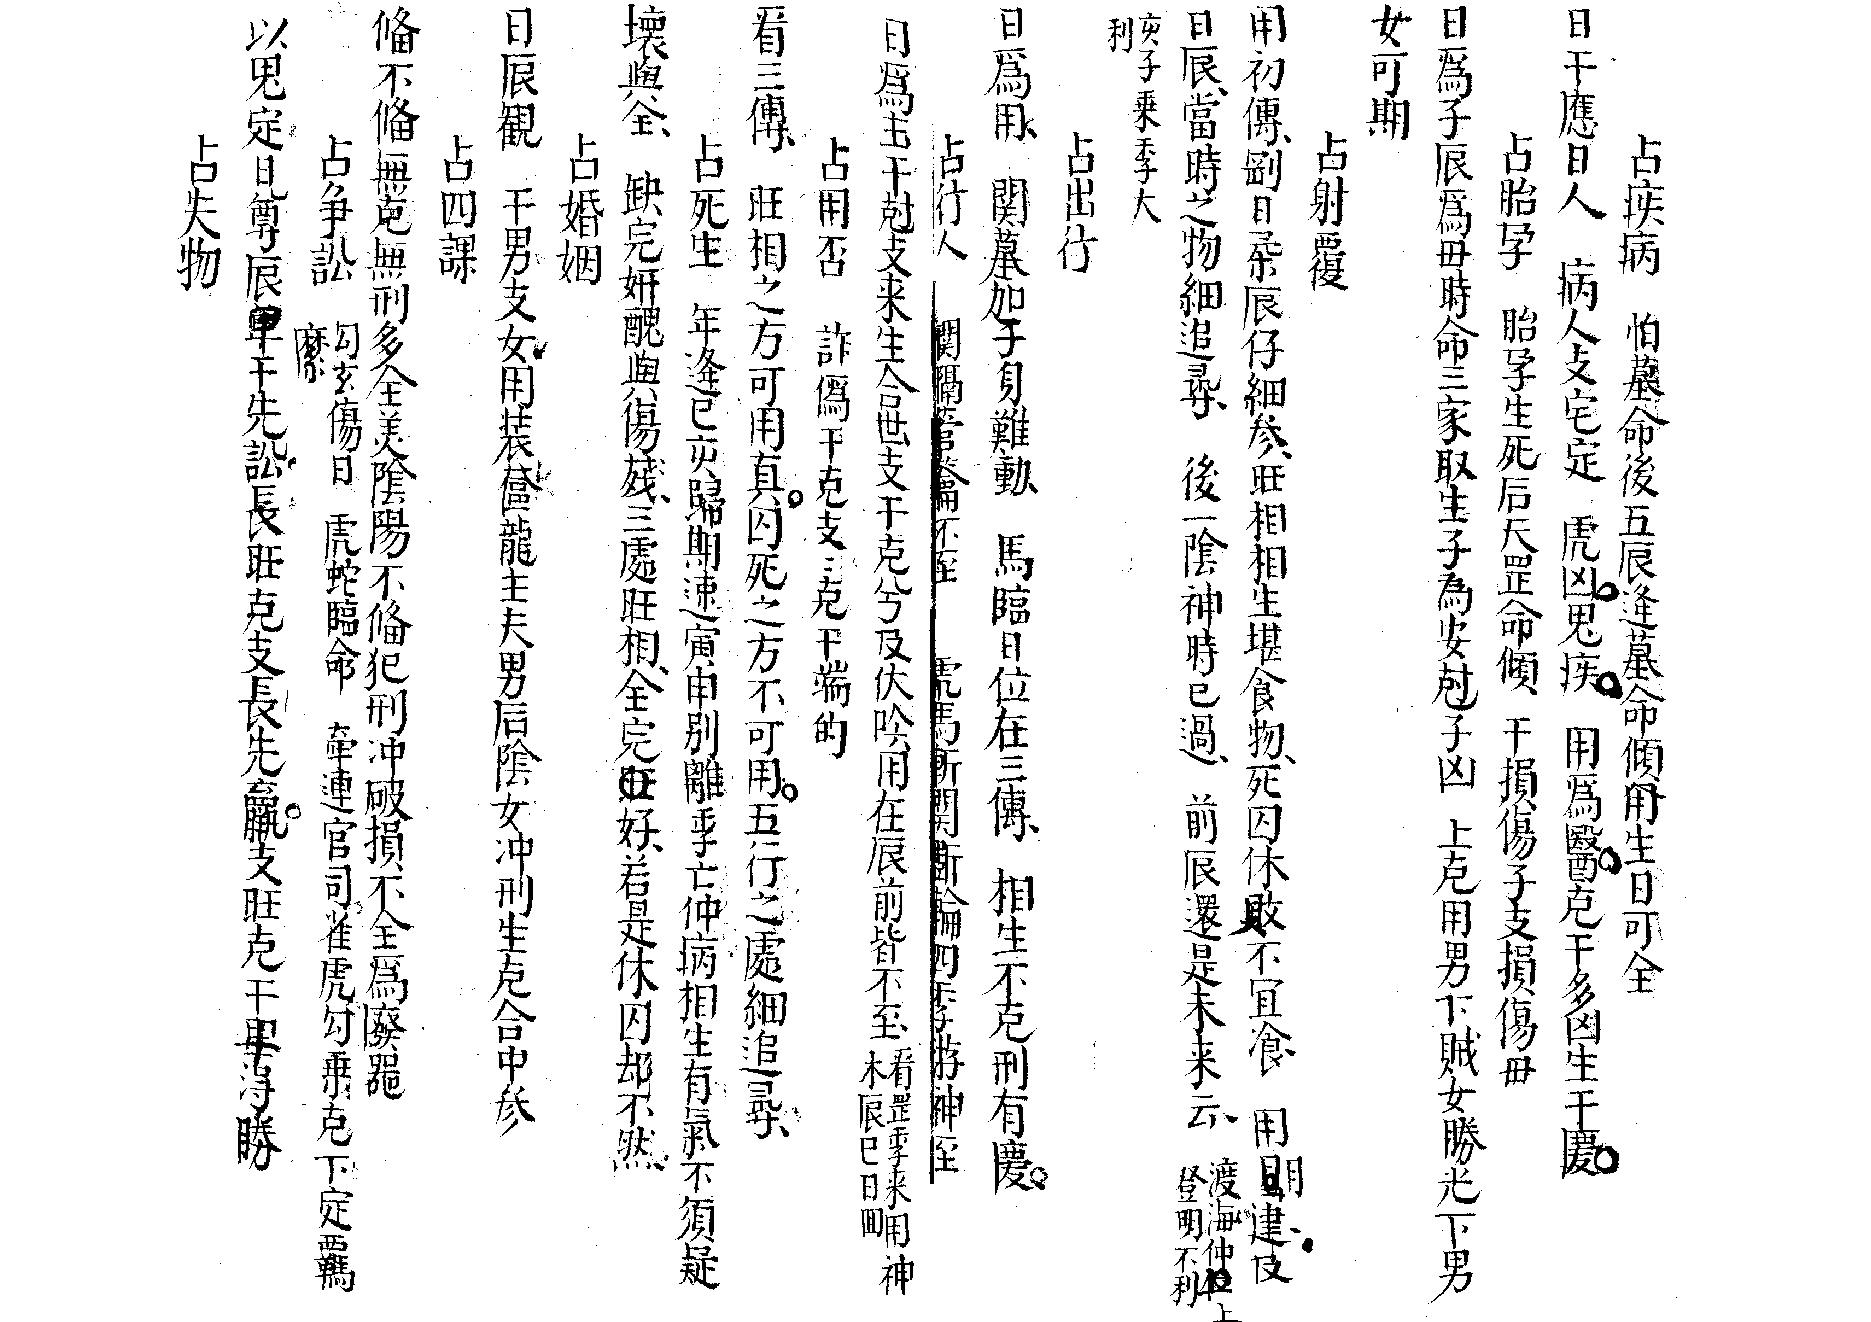 占疾病　怕墓命後五辰逢墓命傾用生日可全
日干應日人　病人支宅定　虎凶鬼疾　用爲醫克干多凶生干慶
占胎孕　胎孕生死后天罡命傾　干損傷子支損傷毋
日爲子辰爲毋時命三家取生子為安尅子凶　上克用男下賊女勝光下男
女可期
占射覆
用初傳、日辰仔細參、旺相相生堪食物、死囚休敗不宜飡　用建及
日辰、當時之物細追尋　後一陰神時已過、前辰還是未来云、渡海仲上
登明不利
亥子乗季大
利
占出行
日爲用、関墓加于身難動　馬臨日位在三傳、相生不克刑有慶
占行人　関隔不至　虎馬斬関斷輪四季游神至
日爲主干尅支来生合世支干克兮及伏吟用在辰前皆不至、看罡季来用神
木辰巳日
占用否　詐僞干克支支克干端的
看三傳、旺相之方可用真囚死之方不可用五行之處細追尋、
占死生　年逢巳亥歸期速寅申別離季亡仲病相生有氣不須疑
壞與全、缺完妍醜與傷殘、三處旺相、全完旺好、若是休囚却不然、
占婚姻
日辰観　干男支女用装奩龍主夫男后陰女冲刑生克合中參
占四課
脩不脩無克無刑多全美陰陽不脩犯刑冲破損不全爲廢噐
占争訟　勾玄傷日　虎蛇臨命　牵連官司雀虎勾乗克下定羈
縻
以鬼定日尊辰卑干先訟長旺克支長先羸支旺克干卑淂勝
占失物